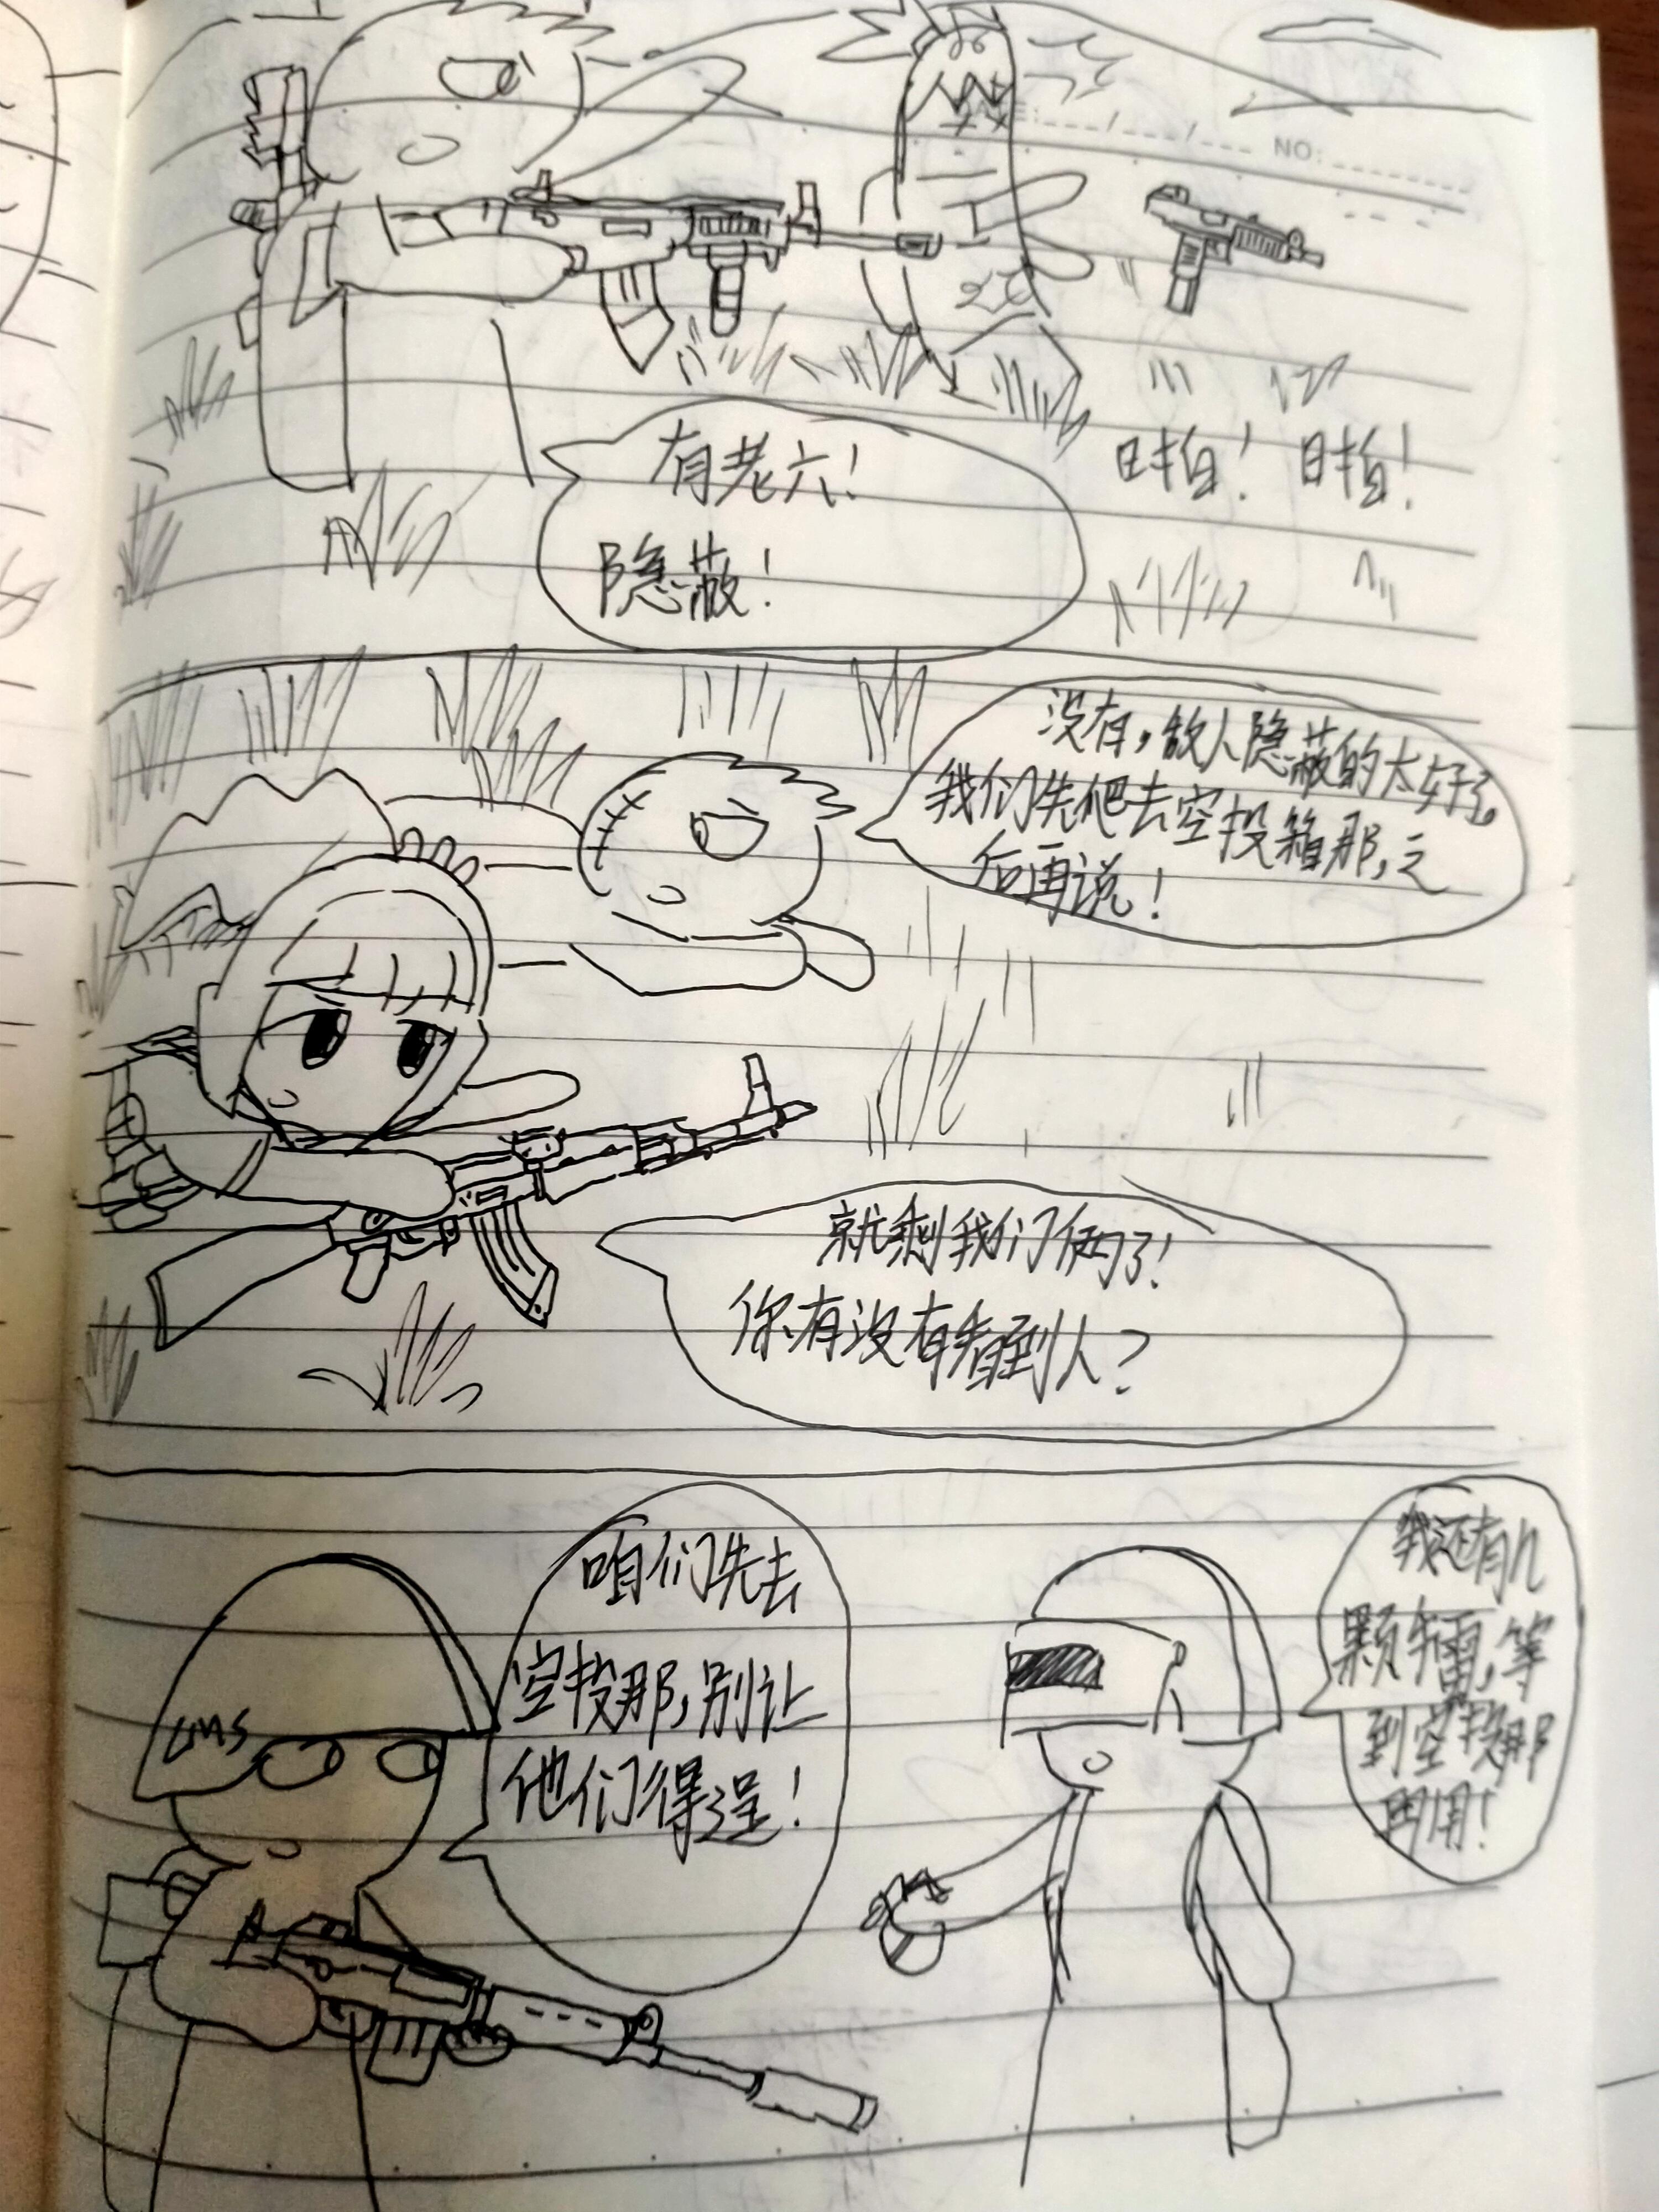 NO:
有老六！
隐蔽！
啪！ 啪！
没有，敌人隐蔽的太好了。
我们先爬去空投箱那，之
后再说！
就剩我们俩了！
你有没有看到人？
咱们先去
空投那，别让
他们得逞！
我还有几
颗手雷，等
到空投那
再用！